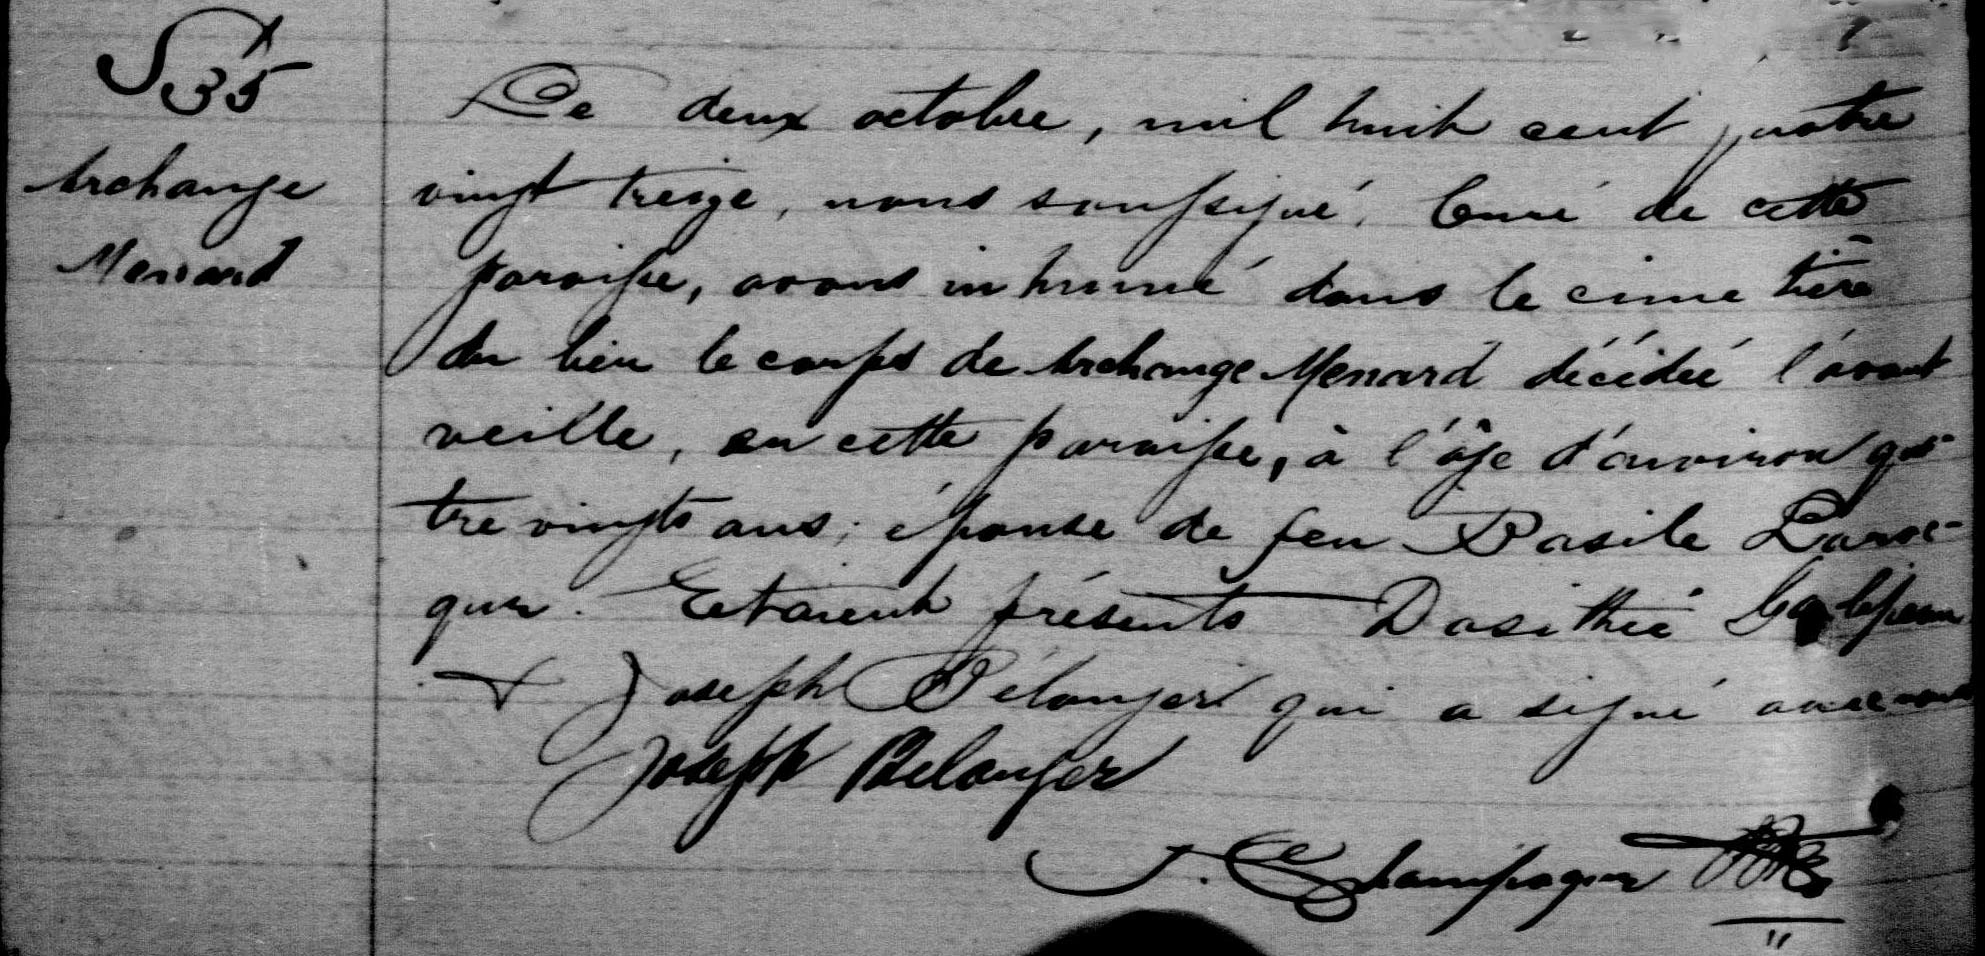 S35
Archange
Menard
Le deux octobre, mil huit cent quatre
vingt treize, nous soussigné, Curé de cette
paroisse, avons inhumé dans le cimetière
du lieu le corps de Archange Menard décédée l'avant
veille, en cette paroisse, à l'âge d'environ qua-
tre vingts ans; épouse de feu Basile Laroc-
que. Etaient présents Dosithée Galipeau
& Joseph Bélanger qui a signé avec nous
Joseph Belanger
J. Champagne Ptre